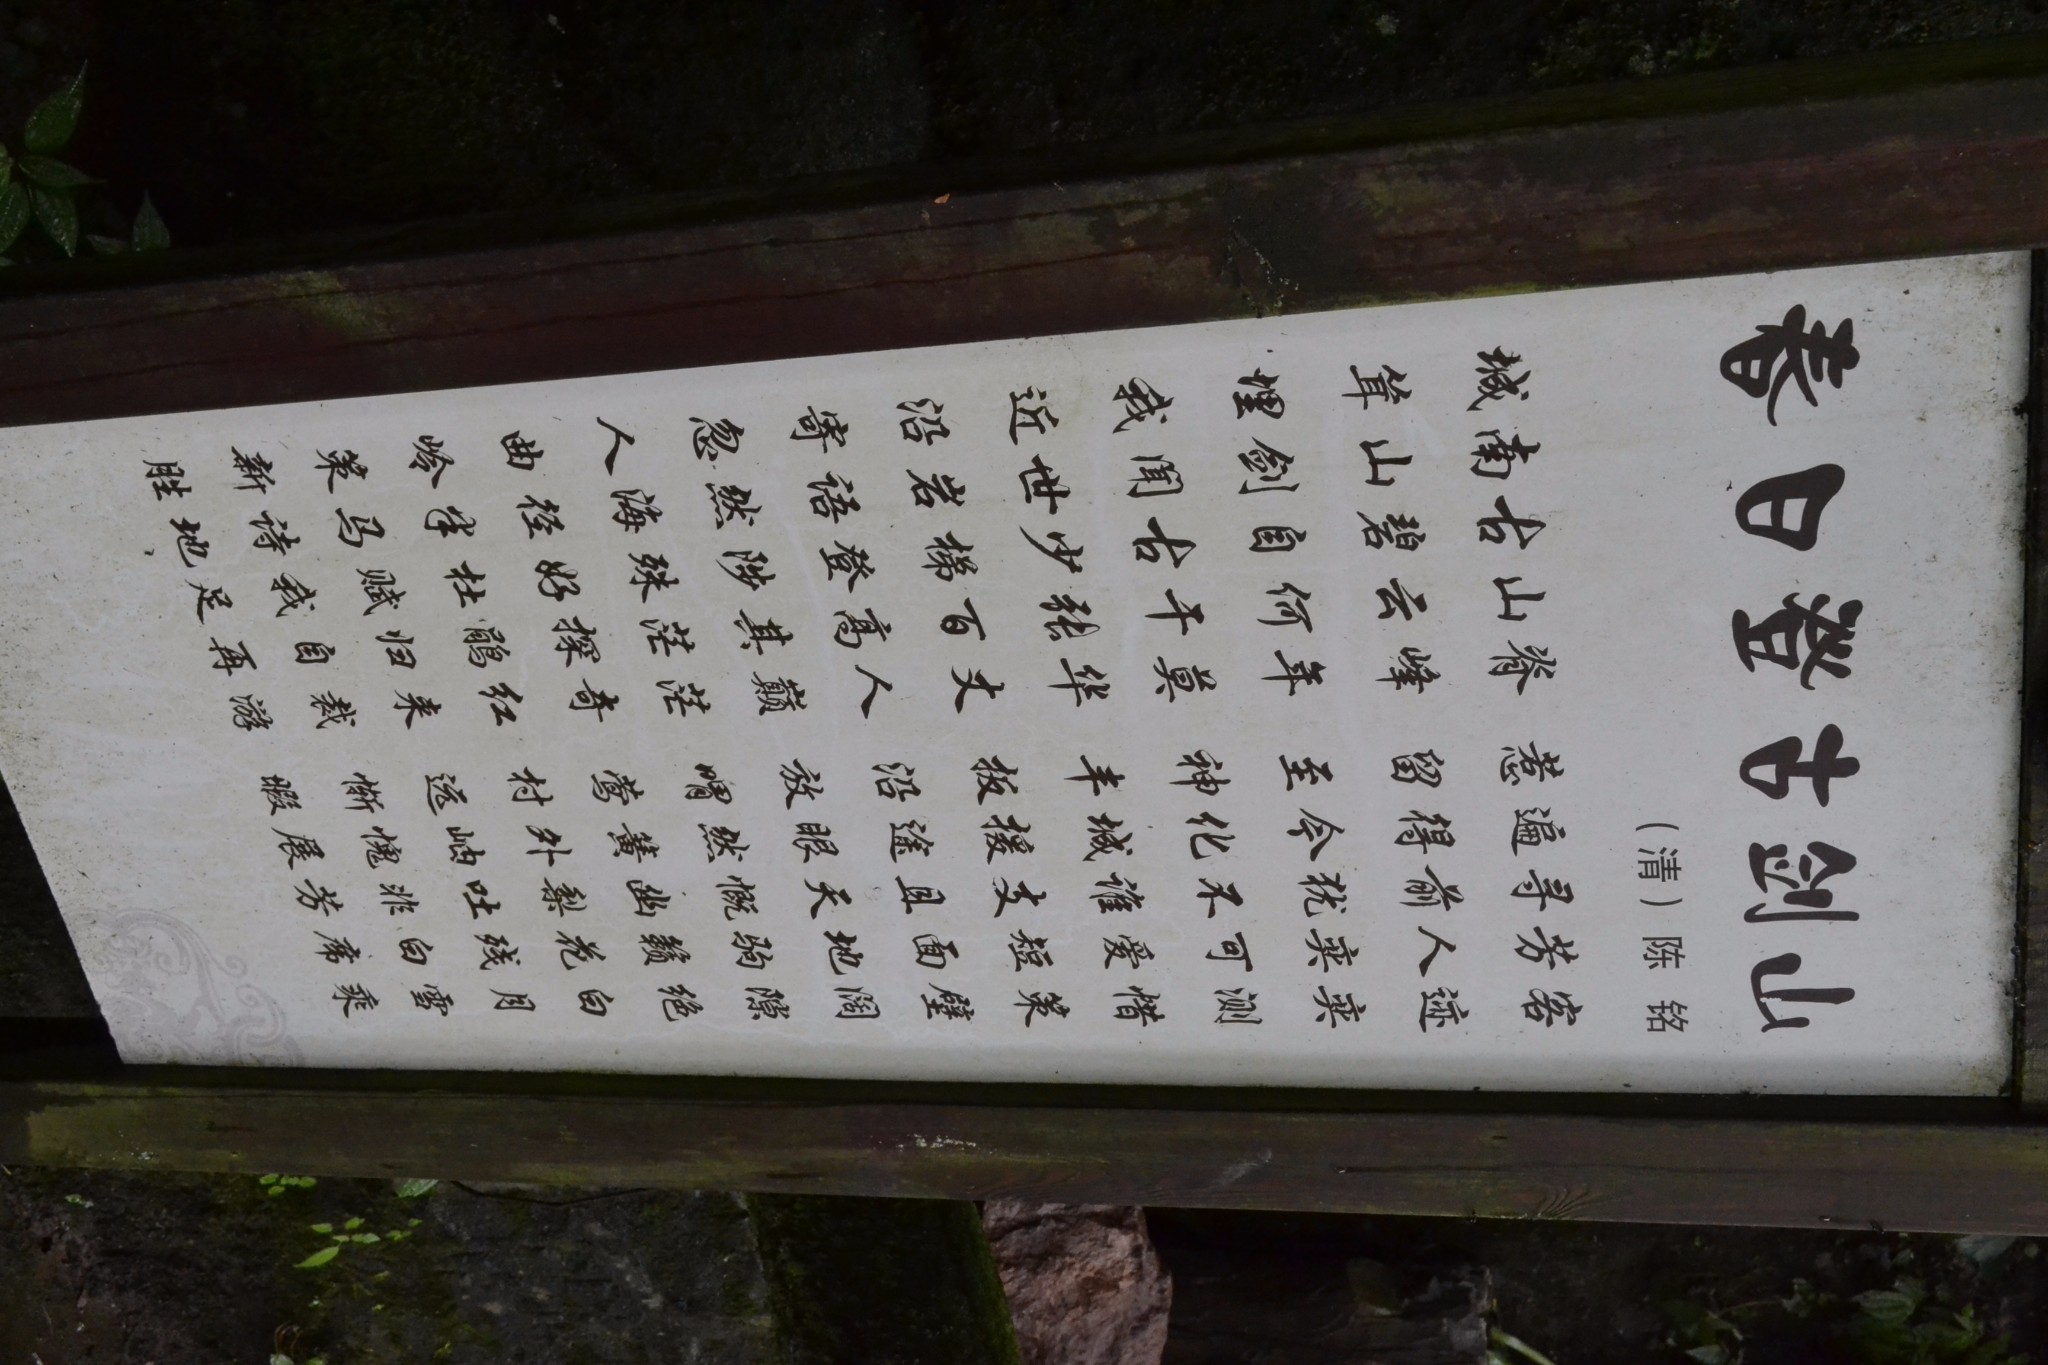 春日登古剑山
（清）陈 铭
城南古山脊 惹遍寻芳客
笄山碧云峰 留得前人迹
埋剑自何年 至今犹奕奕
我闻古干莫 神化不可测
近世少张华 丰城谁爱惜
沿岩梯百丈 扳援支短策
寄语登高人 沿途且面壁
忽然陟其巅 放眼天地阔
人海殊茫茫 喟然慨驹隙
曲径好探奇 莺簧幽籁绝
岭半杜鹃红 村外梨花白
策马赋归来 远岫吐残月
新诗我自裁 惭愧非白雪
胜地足再游 暇展芳席乘